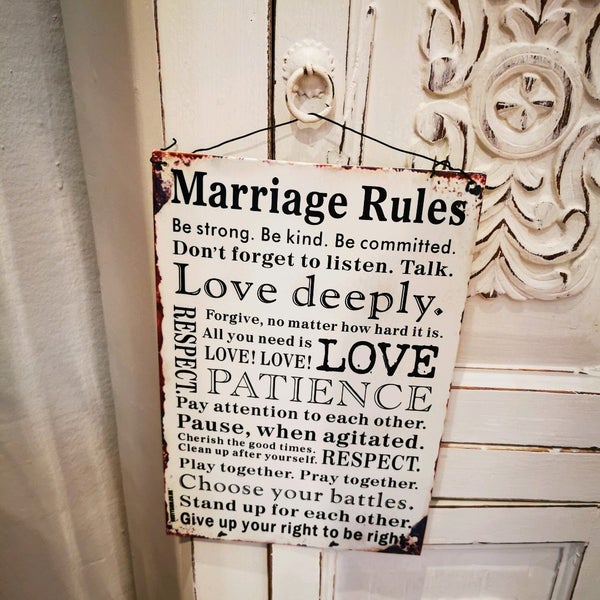 Marriage Rules
Be strong. Be kind. Be committed.
Don't forget to listen. Talk.
Love deeply.
RESPECT
Forgive, no matter how hard it is.
All you need is
LOVE! LOVE! LOVE
PATIENCE
Pay attention to each other.
Pause, when agitated.
Cherish the good times.
Clean up after yourself. RESPECT.
Play together. Pray together.
Choose your battles.
Stand up for each other.
Give up your right to be right